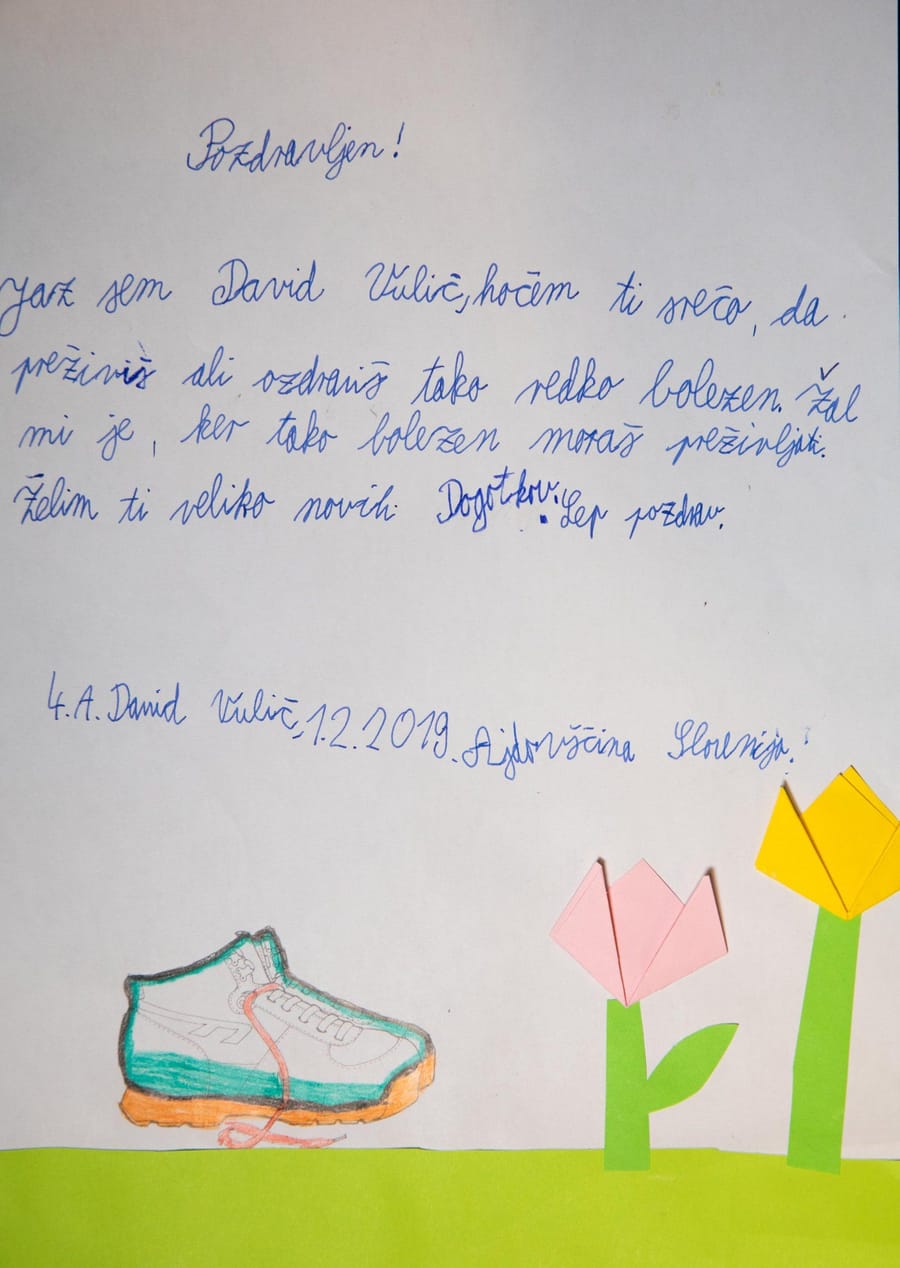 Pozdravljen!
Jaz sem David Vulič, hočem ti srečo, da
preživiš ali ozdraviš tako redko bolezen. Žal
mi je, ker tako bolezen moraš preživljati.
Želim ti veliko novih Dogotkov. Lep pozdrav.
4. A. David Vulič, 1.2.2019. Ajdovščina Slovenija!